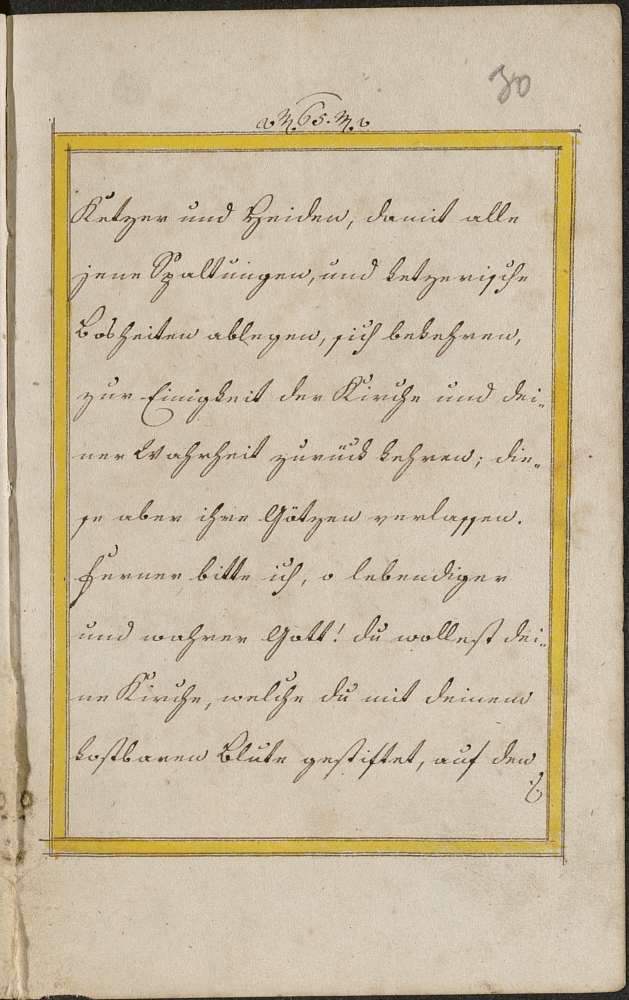 30
65.
Ketzer und Heiden, damit alle
jene Spaltungen, und ketzerische
Bosheiten ablegen, sich bekehren,
zur Einigkeit der Kirche und dei„
ner Wahrheit zurück kehren; die„
se aber ihre Götzen verlassen.
Ferner bitte ich, o lebendiger
und wahrer Gott! du wollest dei„
ne Kirche, welche du mit deinem
kostbaren Blute gestiftet, auf den